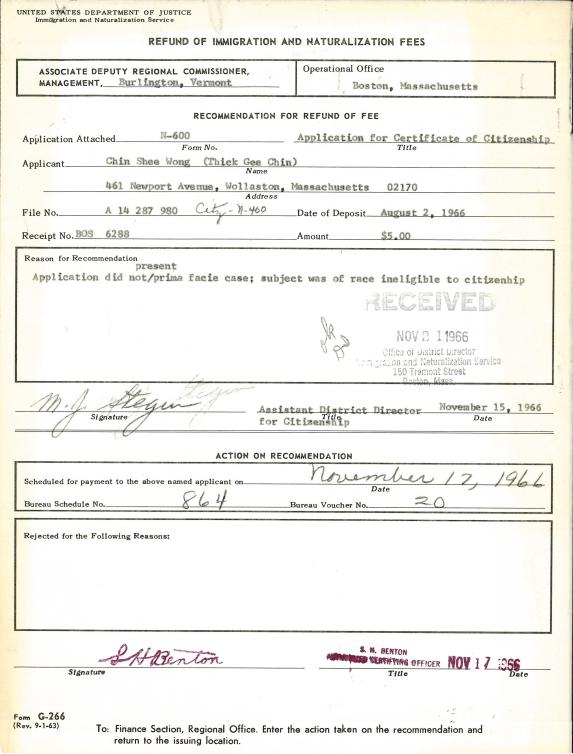 UNITED STATES DEPARTMENT OF JUSTICE
Immigration and Naturalization Service
REFUND OF IMMIGRATION AND NATURALIZATION FEES
ASSOCIATE DEPUTY REGIONAL COMMISSIONER,
MANAGEMENT, Burlington, Vermont
Operational Office
Boston, Massachusetts
RECOMMENDATION FOR REFUND OF FEE
Application Attached N-600 Application for Certificate of Citizenship
Form No. Title
Applicant Chin Shee Wong (Thick Gee Chin)
Name
461 Newport Avenue, Wollaston, Massachusetts 02170
Address
File No. A 14 287 980 City-N-460 Date of Deposit August 2, 1966
Receipt No. BOS 6288 Amount $5.00
Reason for Recommendation
present
Application did not/prima facie case; subject was of race ineligible to citizenhip
RECEIVED
NOV 21 1966
Office of District Director
Immigration and Naturalization Service
150 Tremont Street
Boston, Mass.
M. J. Stegun Assistant District Director November 15, 1966
Signature Title Date
for Citizenship
ACTION ON RECOMMENDATION
Scheduled for payment to the above named applicant on November 17, 1966
Date
Bureau Schedule No. 864 Bureau Voucher No. 20
Rejected for the Following Reasons:
S H Benton
S. H. BENTON
AUTHORIZED CERTIFYING OFFICER NOV 17 1966
Signature Title Date
Form G-266
(Rev. 9-1-63)
To: Finance Section, Regional Office. Enter the action taken on the recommendation and
return to the issuing location.